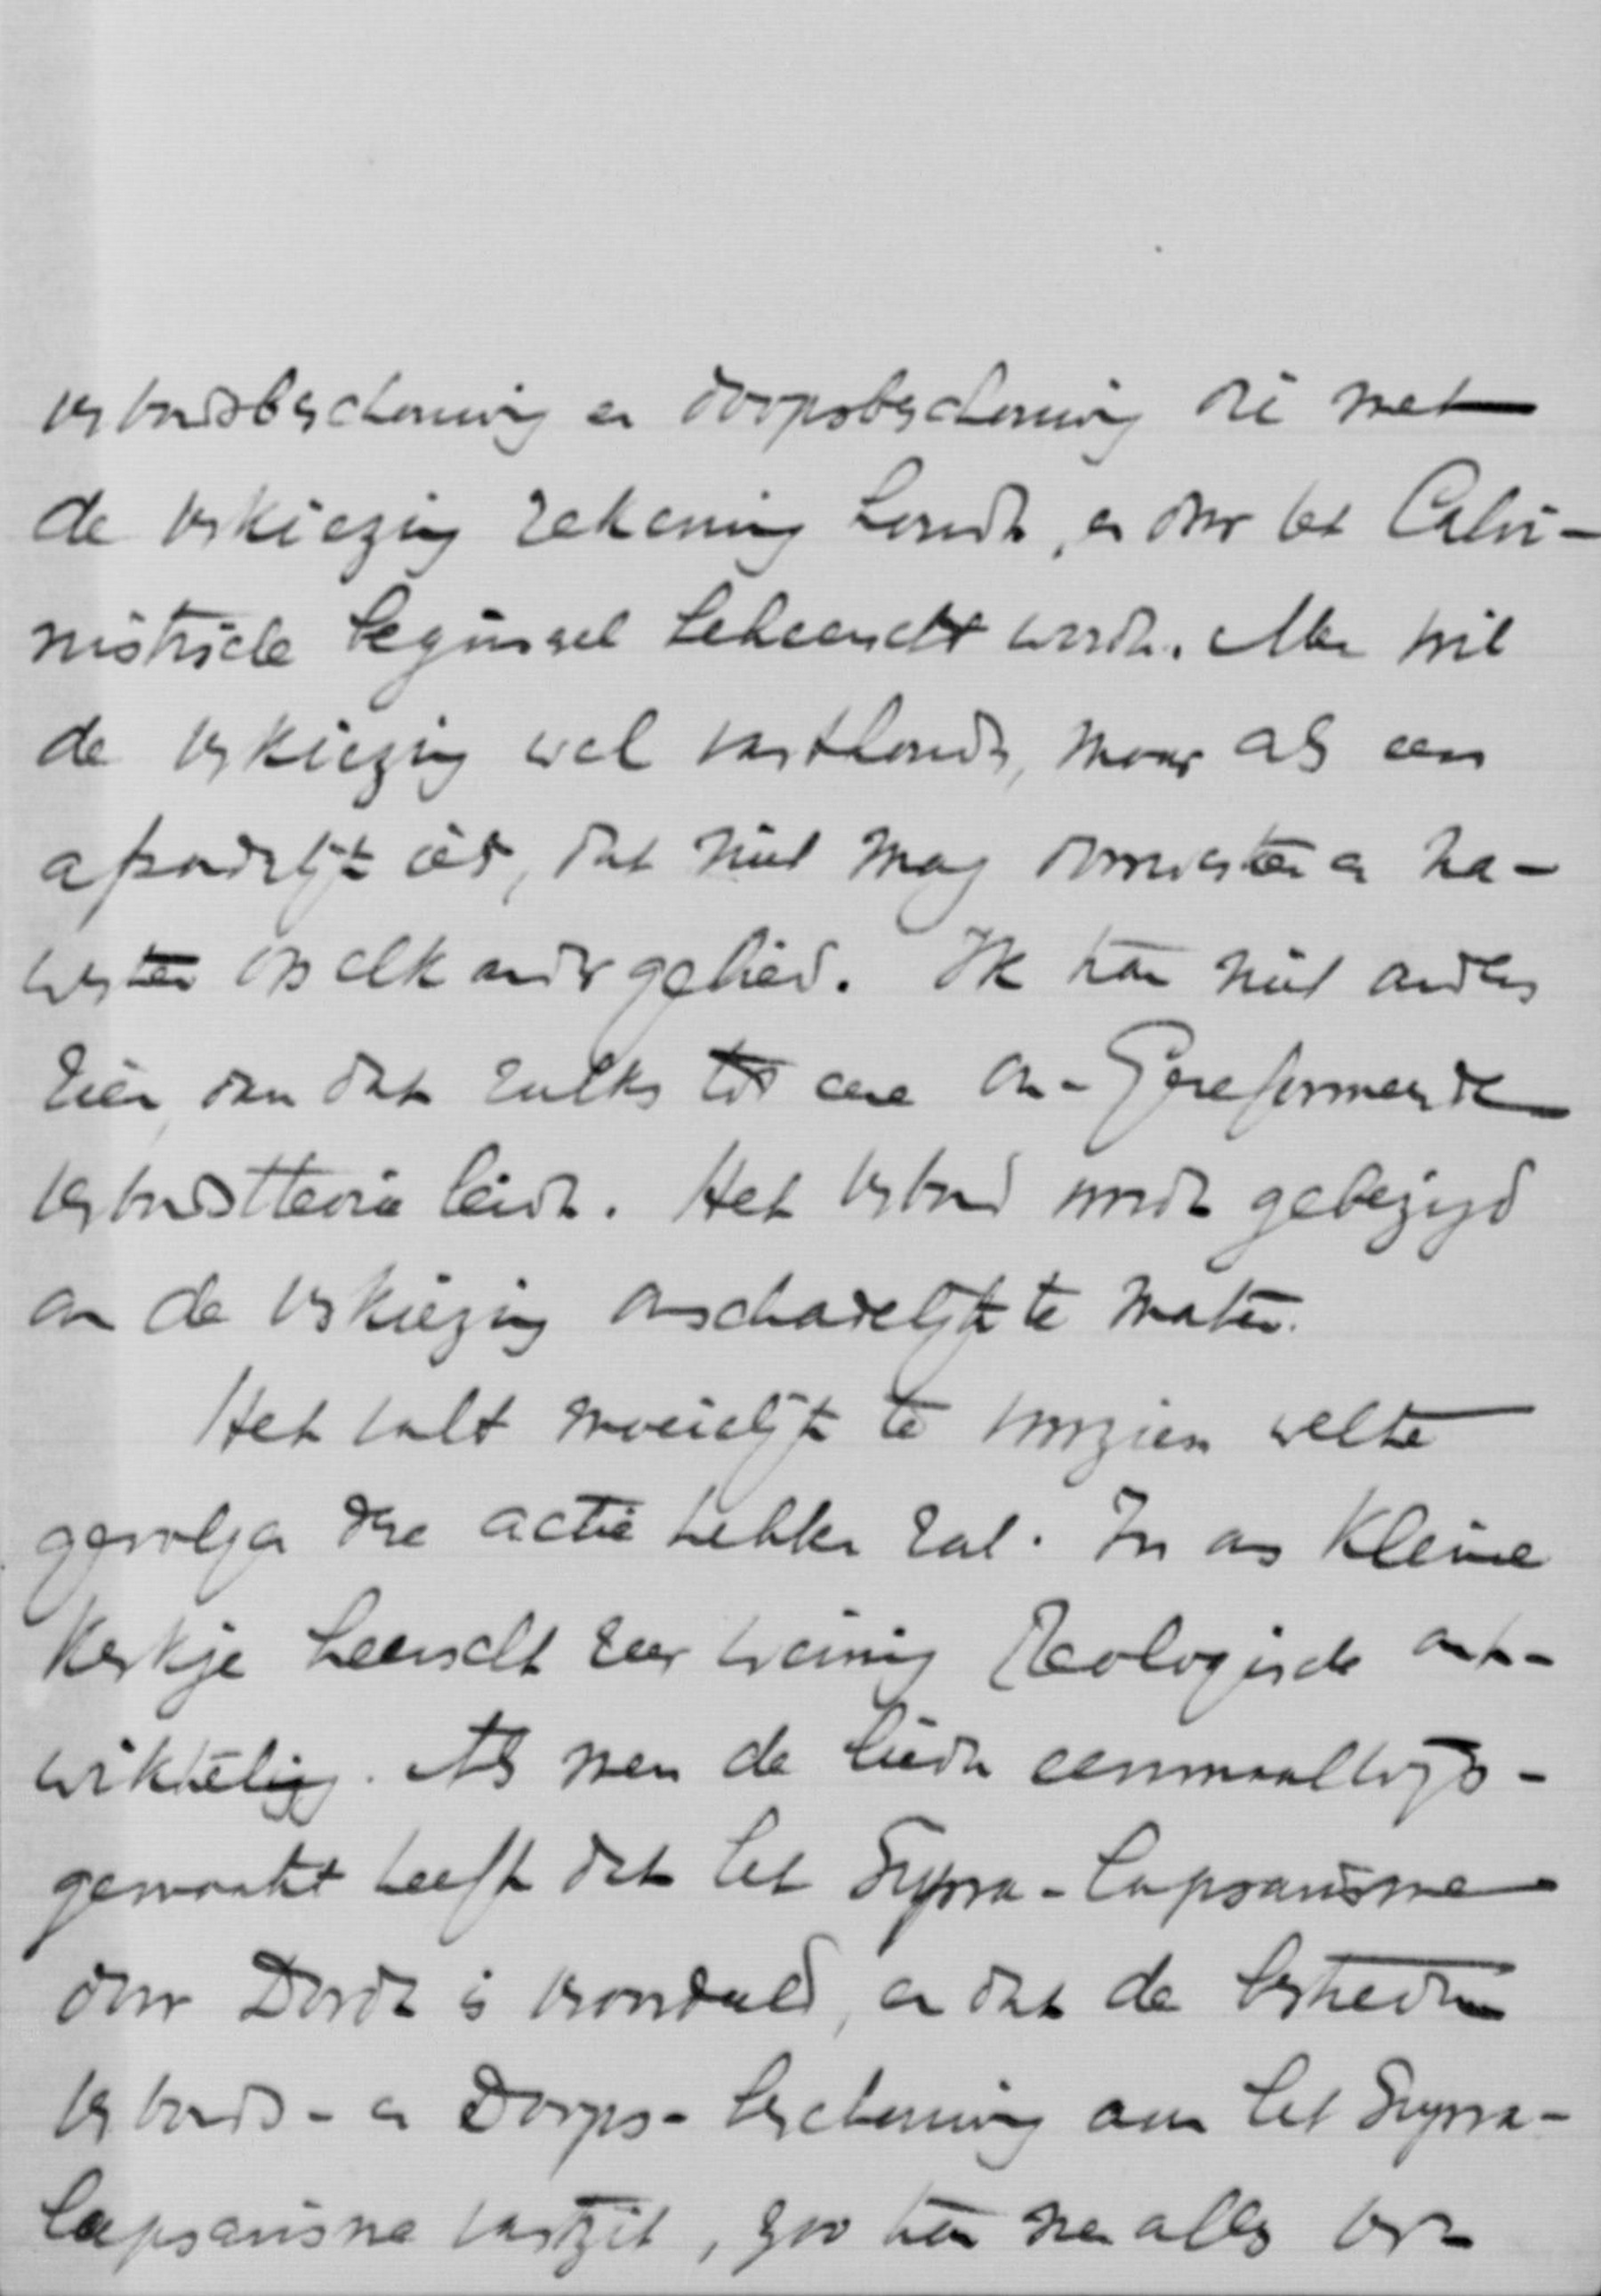 verbondsbeschouwing en doopsbeschouwing die met
de verkiezing rekening houdt, en door het Calvi-
nistische beginsel beheerscht wordt. Men wil
de verkiezing wel vasthouden, maar als een
afzonderlijk iets, dat niet mag doorwerken en na-
werken op elk ander gebied. Ik kan niet anders
zien, dan dat zulks tot eene on-Gereformeerde
verbondstheorie leidt. Het verbond wordt gebezigd
om de verkiezing onschadelijk te maken.
Het valt moeielijk te voorzien welke
gevolgen deze actie hebben zal. In ons kleine
kerkje heerscht zeer weinig theologische ont-
wikkeling. Als men de lieden eenmaal wijs-
gemaakt heeft dat het Supra-lapsarisme
door Dordt is veroordeeld, en dat de bestreden
verbonds- en Doops-beschouwing aan het Supra-
lapsarisme vastzit, zoo kan men alles ver-